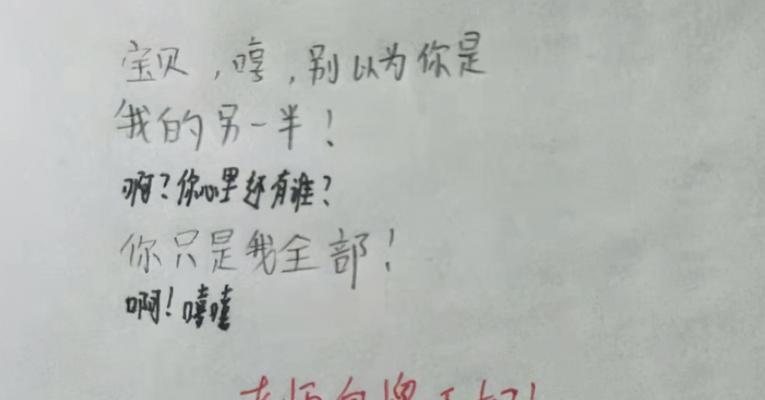 宝贝，哼，别以为你是
我的另一半！
啊？你心里还有谁？
你只是我全部！
啊！嘻嘻